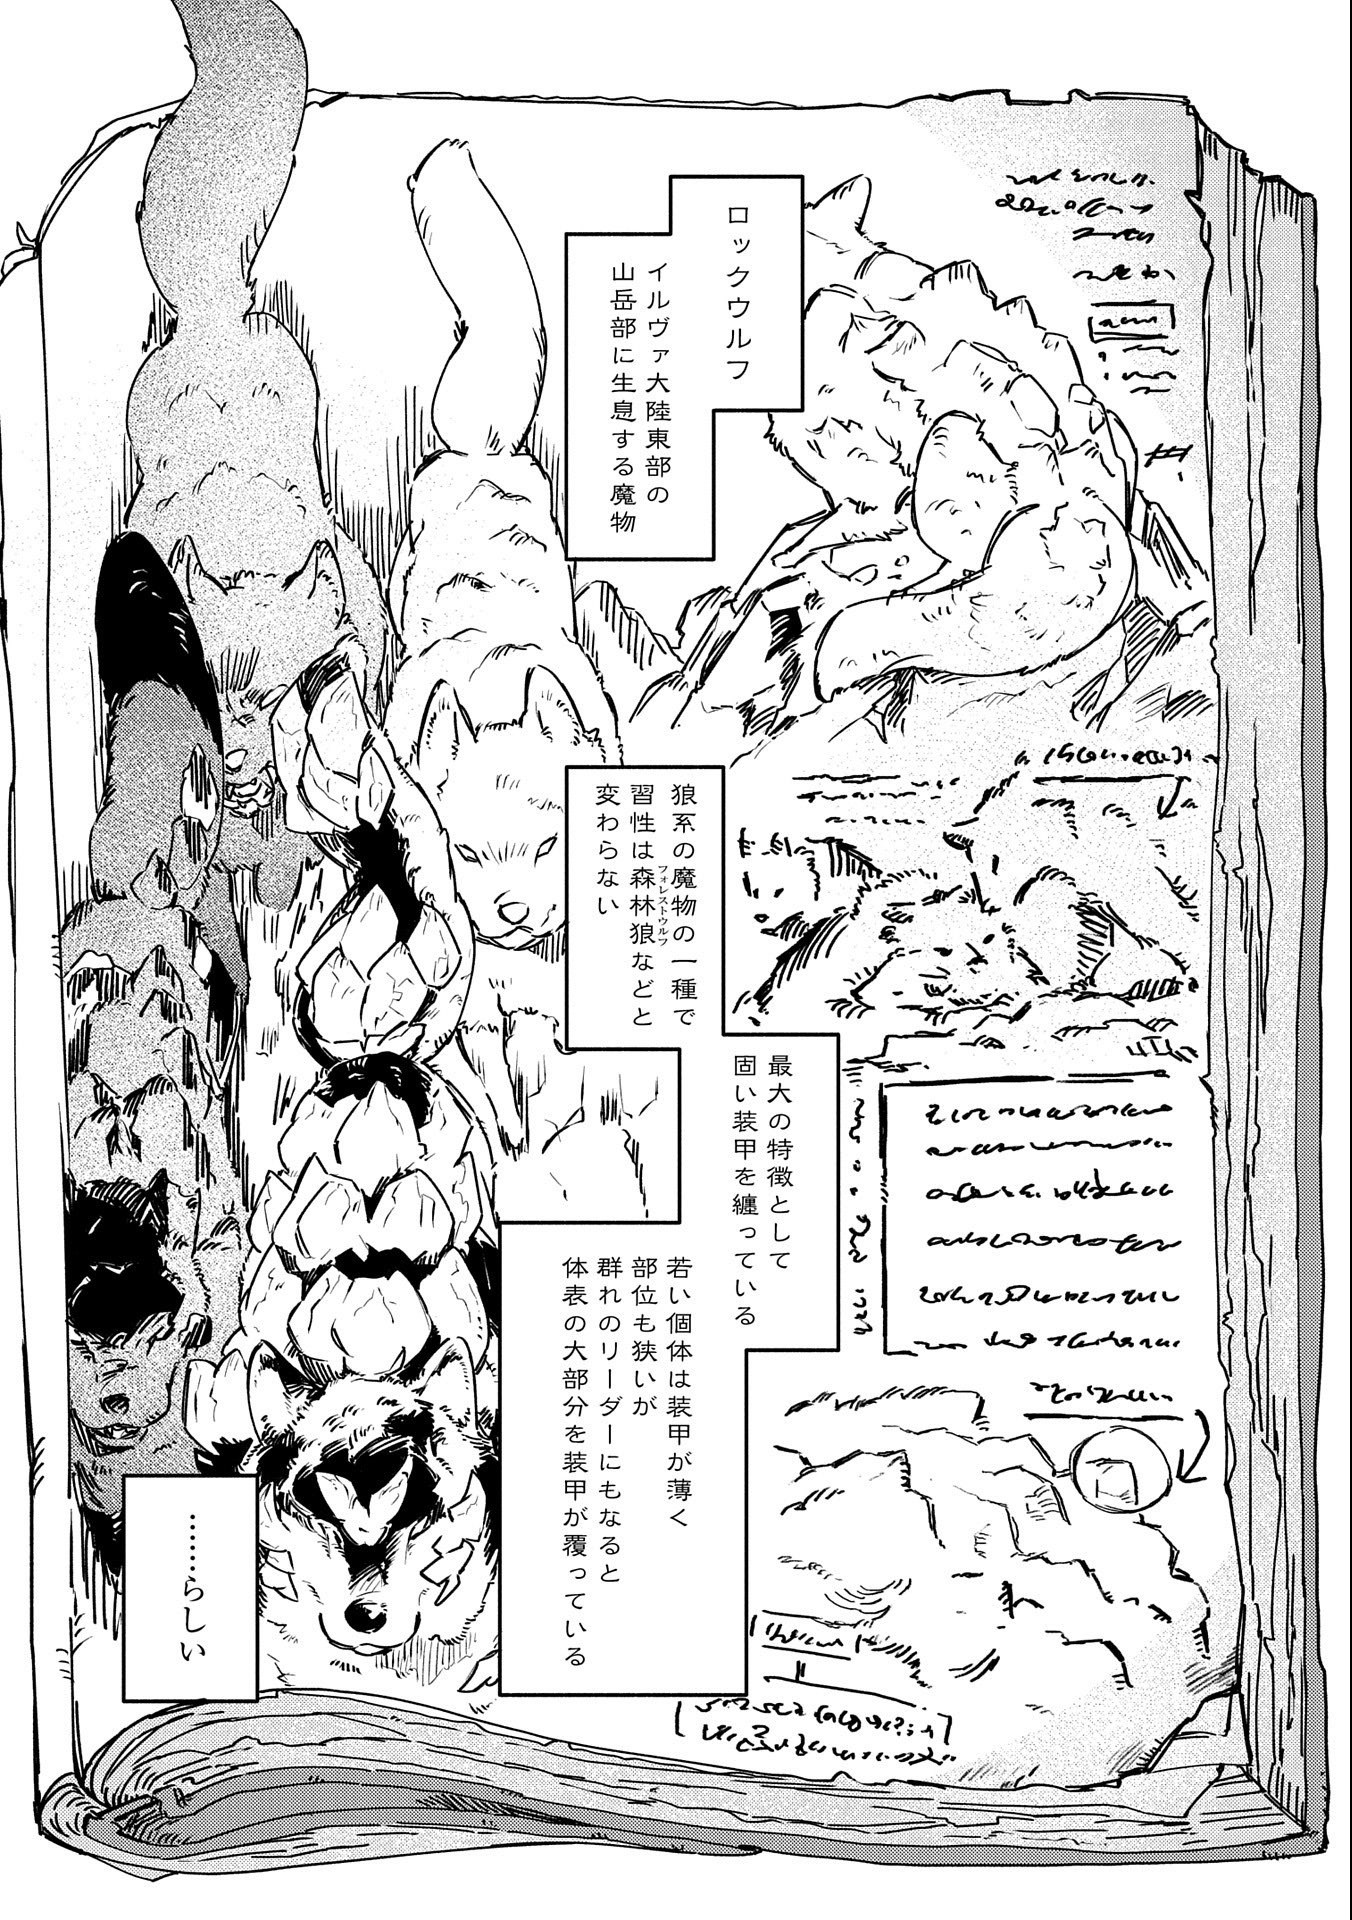 ロックウルフ
イルヴァ大陸東部の
山岳部に生息する魔物
狼系の魔物の一種で
習性は森林狼などと
フォレストウルフ
変わらない
最大の特徴として
固い装甲を纏っている
若い個体は装甲が薄く
部位も狭いが
群れのリーダーにもなると
体表の大部分を装甲が覆っている
……らしい